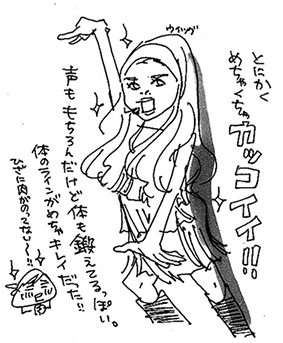 とにかく
めちゃくちゃ
カッコイイ!!
ウィッグ
声ももちろんだけど体も鍛えてるっぽい。
体のラインがめちゃキレイだった!!
ひざに肉がのってない〜!!